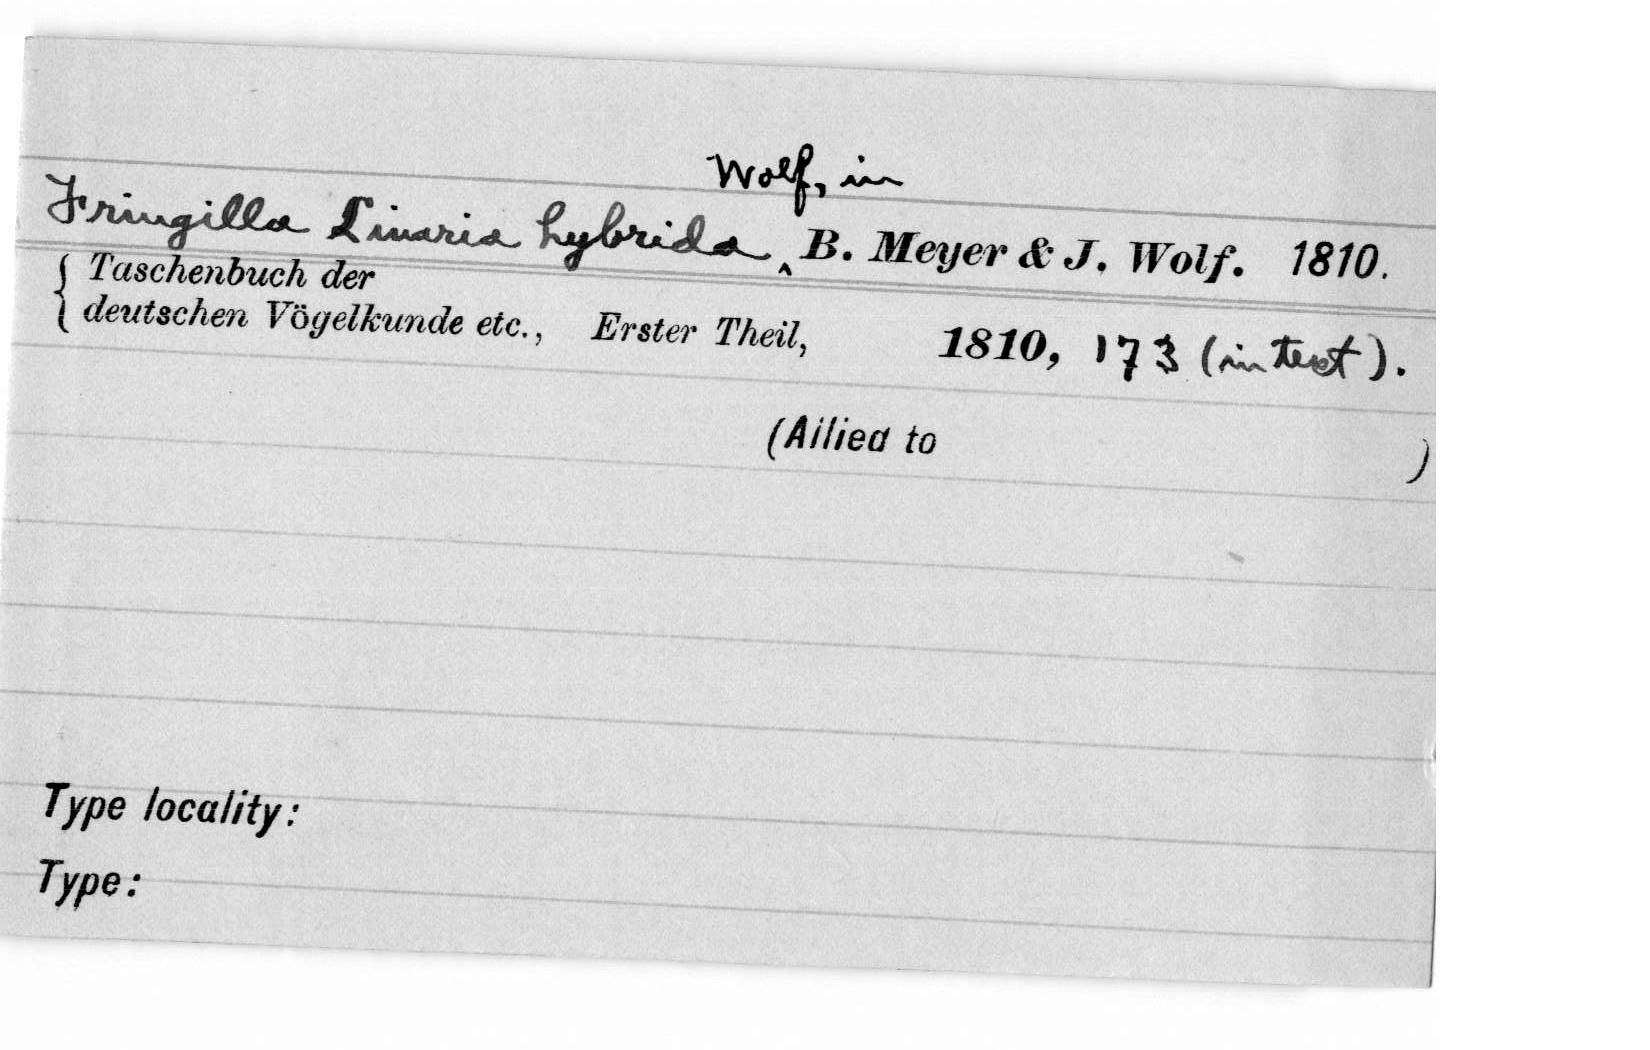 Wolf, in
Fringilla Linaria hybrida ‸ B. Meyer & J. Wolf. 1810.
{ Taschenbuch der
deutschen Vögelkunde etc., Erster Theil, 1810, 173 (in text).
(Allied to )
Type locality:
Type: